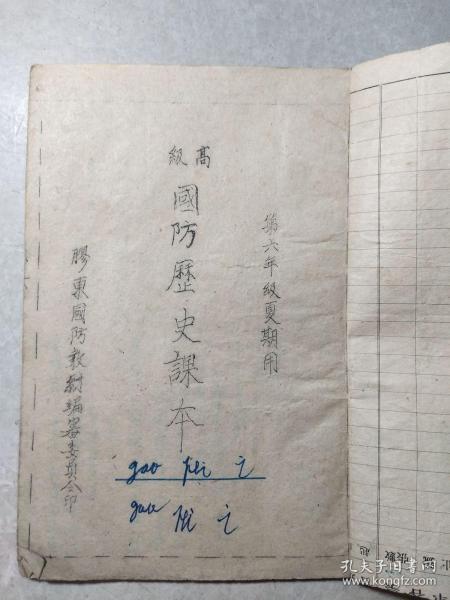 第六年級夏期用
高級
國防歷史課本
膠東國防教材編審委員会印
gao pei
gao
孔夫子旧书网